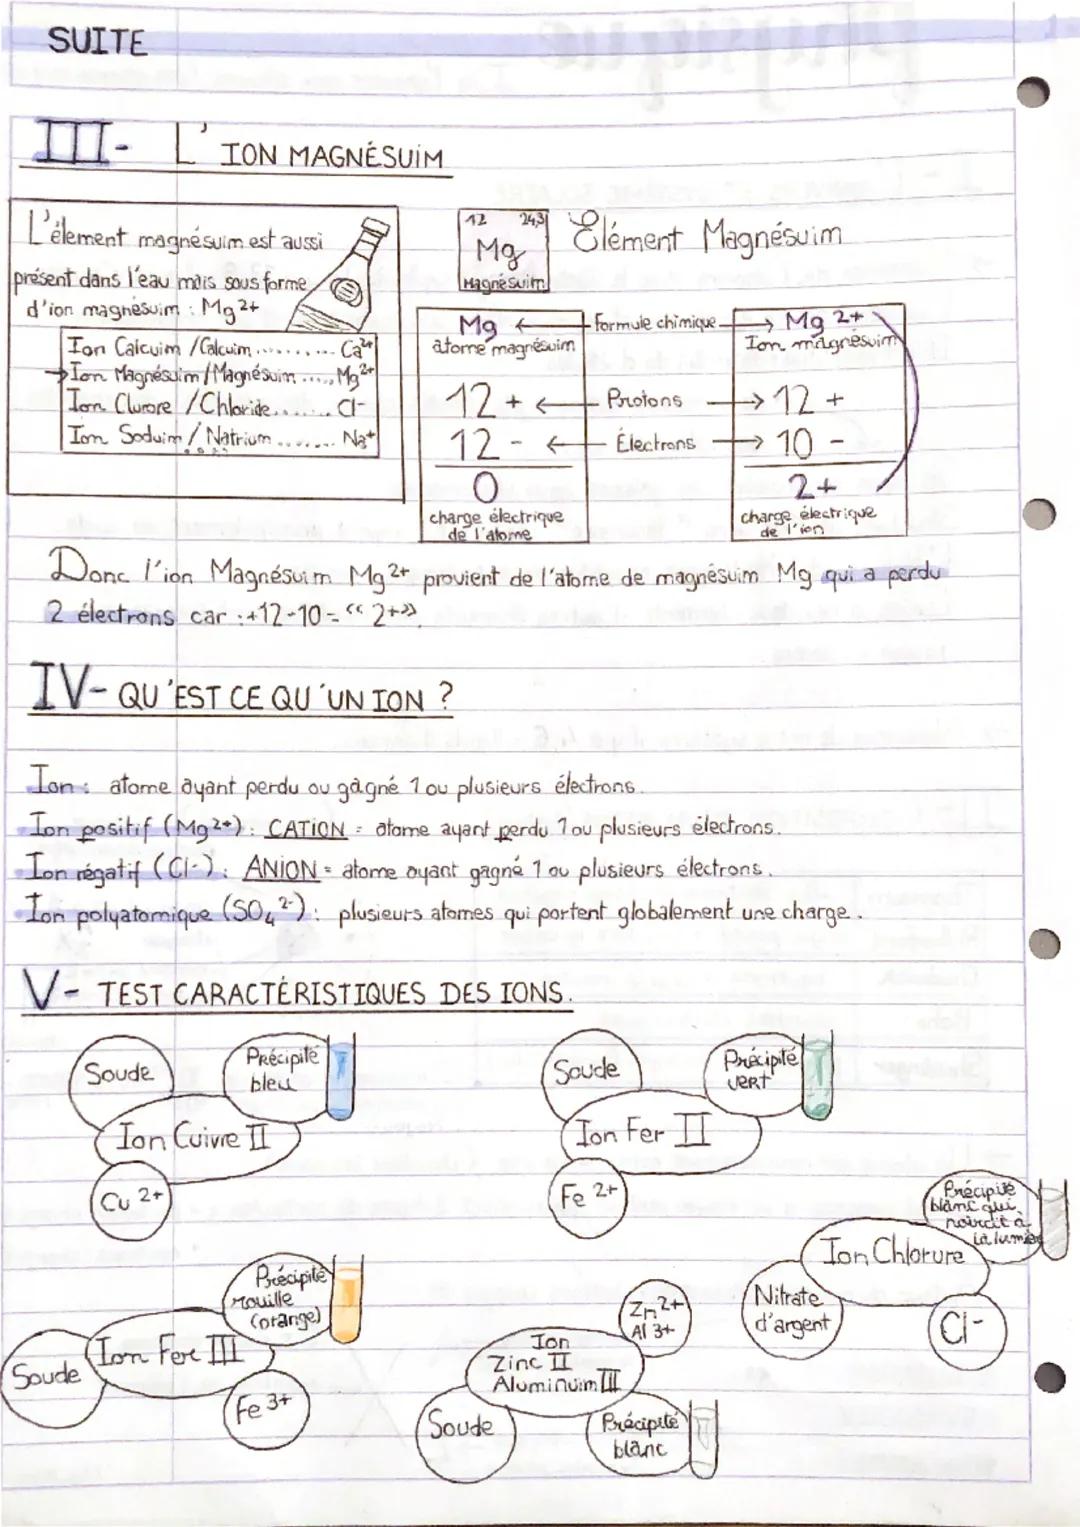 SUITE
III- L'ION MAGNÉSUIM
L'élement magnésuim est aussi
présent dans l'eau mais sous forme
d'ion magnésuim : Mg2+
Ion Calcuim /Calcuim ......... Ca2+
→Ion Magnésuim/Magnésuim ..... Mg2+
Ion Clurore /Chloride....... Cl-
Ion Soduim / Natrium ....... Na+
12 24,3
Mg
Magnésuim
Élément Magnésuim
Mg ← Formule chimique → Mg 2+
atome magnésuim
Ion magnésuim
12 + ← Protons → 12 +
12 - ← Électrons → 10 -
0
2+
charge électrique
de l'atome
charge électrique
de l'ion
Donc l'ion Magnésuim Mg2+ provient de l'atome de magnésuim Mg qui a perdu
2 électrons car :+12-10= « 2+».
IV- QU'EST CE QU'UN ION ?
Ion : atome ayant perdu ou gagné 1 ou plusieurs électrons.
Ion positif (Mg2+) : CATION = atome ayant perdu 1 ou plusieurs électrons.
Ion négatif (Cl-) : ANION = atome ayant gagné 1 ou plusieurs électrons.
Ion polyatomique (SO4 2-) : plusieurs atomes qui portent globalement une charge.
V- TEST CARACTÉRISTIQUES DES IONS.
Soude
Précipité
bleu
Ion Cuivre II
Cu 2+
Soude
Précipité
vert
Ion Fer II
Fe 2+
Précipité
blanc qui
noircit à
la lumière
Ion Chlorure
Nitrate
d'argent
Cl-
Précipité
rouille
(orange)
Ion Fer III
Soude
Fe 3+
Zn2+
Al 3+
Ion
Zinc II
Aluminuim III
Soude
Précipité
blanc